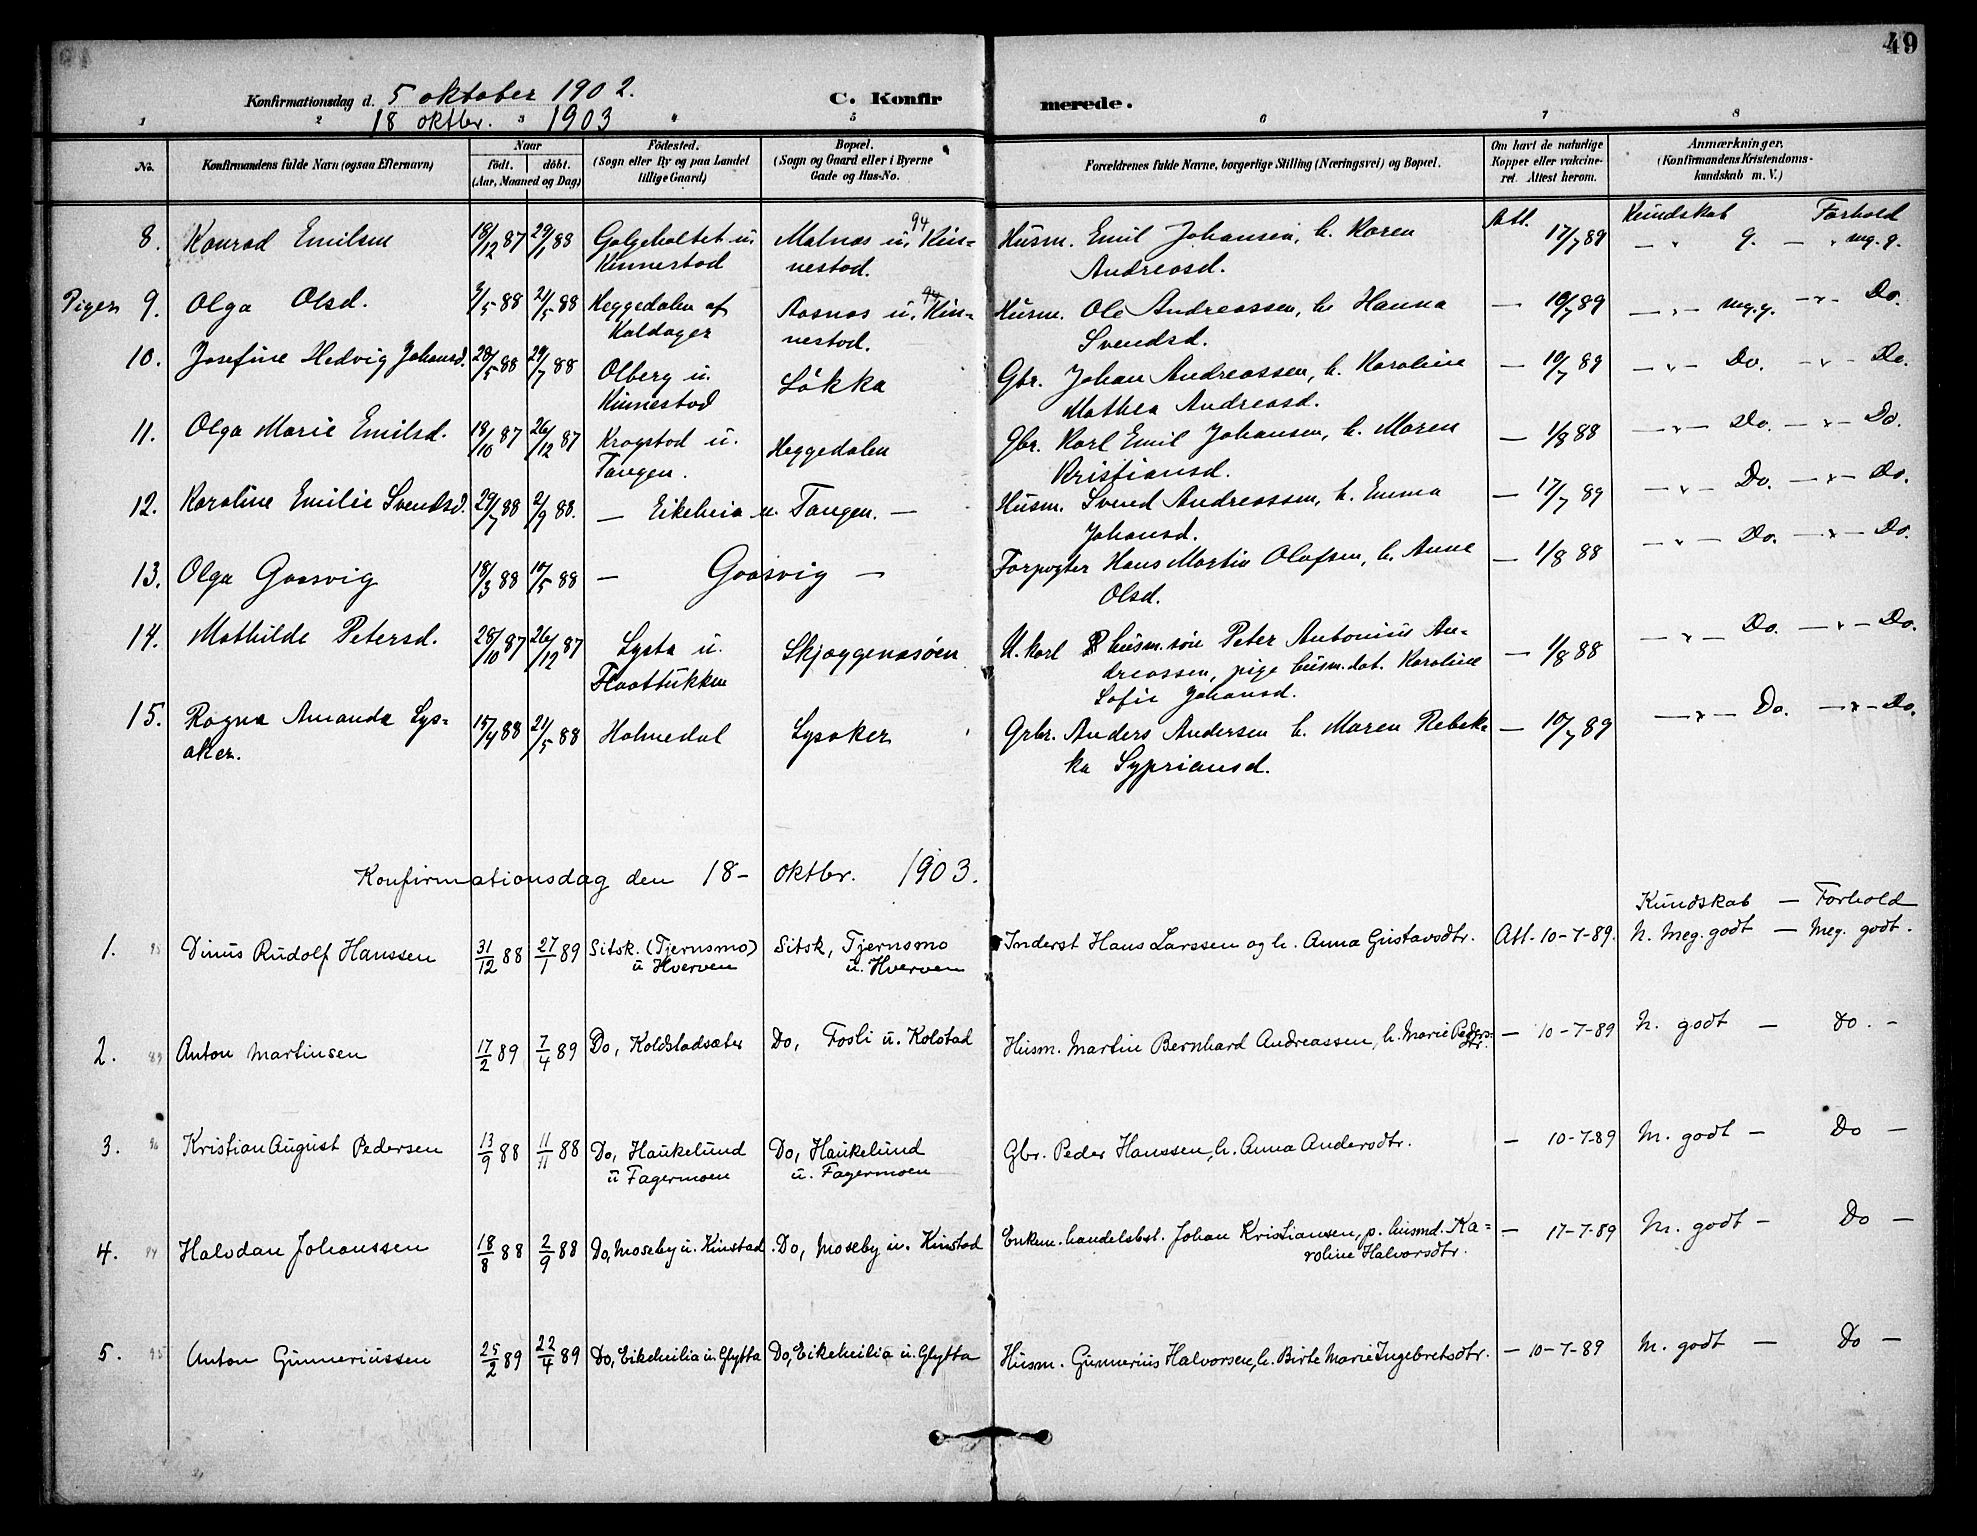 49
Konfirmationsdag d. 5 oktober 1902. C. Konfirmerede.
18 oktbr. 1903
1 2 3 4 5 6 7 8
No. Konfirmandens fulde Navn (ogsaa Efternavn) Naar Födested. Bopæl. Forældrenes fulde Navne, borgerlige Stilling (Næringsvei) og Bopæl. Om havt de naturlige Anmærkninger.
födt. döbt. (Sogn eller By og paa Landet (Sogn og Gaard eller i Byerne Kopper eller vakcine- (Konfirmandens Kristendoms-
(Aar, Maaned og Dag) tillige Gaard) Gade og Hus-No. ret. Attest herom. kundskab m. V.)
Att. Kundskab Forhold
8. Konrad Emilsen 18/12 87 29/1 88 Galgeholtet u. Matnas u. Kin= Husm. Emil Johansen, h. Karen 17/7 89 — " g. — " mg. g.
Kinnestad nestad. Andreasd.
94
Piger 9. Olga Olsd. 9/5 88 21/5 88 Heggedalen af Aasnas u. Kin= Husm. Ole Andreassen, h. Hanna — 10/7 89 — " — mg. g. — " — Do.
Kaldager nestad. Svendsd.
10. Josefine Hedvig Johansd. 28/5 88 29/7 88 Olberg u. Lökka Gbr. Johan Andreassen, h. Karoline — 10/7 89 — " — Do. — " — Do.
Kinnestad Mathea Andreasd.
11. Olga Marie Emilsd. 18/10 87 26/12 87 Kragstad u. Heggedalen Gbr. Karl Emil Johansen, h. Maren — 1/8 88 — " — Do. — " — Do.
Tangen. Kristiansd.
12. Karoline Emilie Svendsd. 29/7 88 2/9 88. — Eikeheia u. Tangen. — Husm. Svend Andreassen, h. Emma — 17/7 89 — " — Do. — " — Do.
Johansd.
13. Olga Gaasvig 18/3 88 10/5 88 — Gaasvig — Forpagter Hans Martin Olafsen, h. Anne — 1/8 88 — " — Do. — " — Do.
Olsd.
14. Mathilde Petersd. 28/10 87 26/12 87 Lysta u. Skjæggenasöen U. karl husm. sön Peter Antonius An= — 1/8 88 — " — Do. — " — Do.
Flaatbukken dreassen, pige husm. dat. Karoline
Sofie Johansd.
15. Ragna Amanda Lys= 15/4 88 21/5 88 Holmedal Lysaker Grbr. Anders Andersen h. Maren Rebek= — 10/7 89 — " — Do. — " — Do.
aker. ka Sypriansd.
Konfirmationsdag den 18- oktbr. 1903.
Kundskab — Forhold
1. Dinus Rudolf Hanssen 31/12 88 27/1 89 Sitsk. (Tjernsmo) Sitsk, Tjernsmo Inderst Hans Larssen og h. Anna Gustavsdtr. Att. 10-7-89. N. Meg. godt — Meg. godt.
u Hverven u. Hverven
2. 89 Anton Martinsen 17/2 89 7/4 89 Do, Koldstadsæter Do, Fosli u. Kolstad Husm. Martin Bernhard Andreassen, h. Marie Peders= — 10-7-89 N. godt — Do. —
dtr.
3. Kristian August Pedersen 13/9 88 11/11 88 Do, Haukelund Do, Haukelund Gbr. Peder Hanssen, h. Anna Andersdtr. — 10-7-89 M. godt — Do —
u Fagermoen u. Fagermoen
4. Halvdan Johanssen 18/8 88 2/9 88 Do, Moseby u. Kinstad. Do, Moseby u. Kinstad Enkem. handelsbst. Johan Kristiansen, p. husmd. Ka= — 17-7-89 M. godt — Do —
roline Halvorsdtr.
5. 95 Anton Gunneriussen 25/2 89 22/4 89 Do, Eikehilia u. Glytta Do, Eikehilia u. Glytta Husm. Gunnerius Halvorsen, h. Birte Marie Ingebretsdtr. — 10-7-89 M. godt — Do —